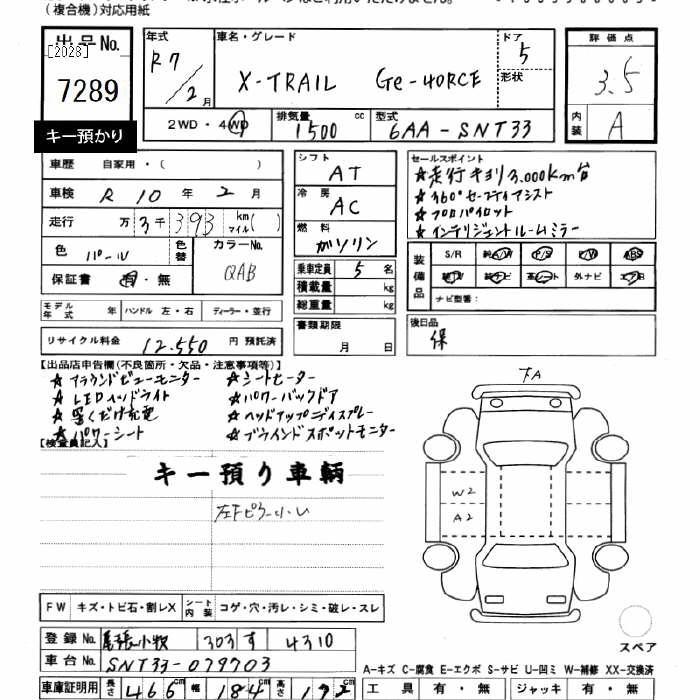 (複合機)対応用紙
出品No.
[2028]
7289
キー預かり
年式
R7/2月
車名・グレード
X-TRAIL Ge-4ORCE
ドア
5
形状
評価点
3.5
内装
A
2WD・4WD
排気量
1500 cc
型式
6AA-SNT33
車歴 自家用・( )
車検 R 10 年 2 月
走行 万 3千 393 km マイル( )
色 パール
色替
カラーNo.
QAB
保証書 有・無
モデル年式 年 ハンドル 左・右 ディーラー・並行
リサイクル料金 12,550 円 預託済
シフト
AT
冷房
AC
燃料
ガソリン
乗車定員 5 名
積載量 kg
総重量 kg
書類期限
月 日
セールスポイント
★走行キョリ3.000km台
★360°セーフティアシスト
★プロパイロット
★インテリジェントルームミラー
装備品
S/R 純A/W P/S P/W ABS
純TV 純ナビ 革シート 外ナビ エアB
ナビ型番:
後日品
保
【出品店申告欄(不良箇所・欠品・注意事項等)】
★アラウンドビューモニター ★シートヒーター
★LEDヘッドライト ★パワーバックドア
★置くだけ充電 ★ヘッドアップディスプレー
★パワーシート ★ブラインドスポットモニター
【検査員記入】
キー預り車輌
左Fピラー小し
下A
W2
A2
スペア
FW キズ・トビ石・割レX シート内装 コゲ・穴・汚レ・シミ・破レ・スレ
登録No. 尾張小牧 303 す 4310
車台No. SNT33-079703
A-キズ C-腐食 E-エクボ S-サビ U-凹ミ W-補修 XX-交換済
車庫証明用 長さ 466 cm 幅 184 cm 高さ 172 cm
工具 有・無 ジャッキ 有・無